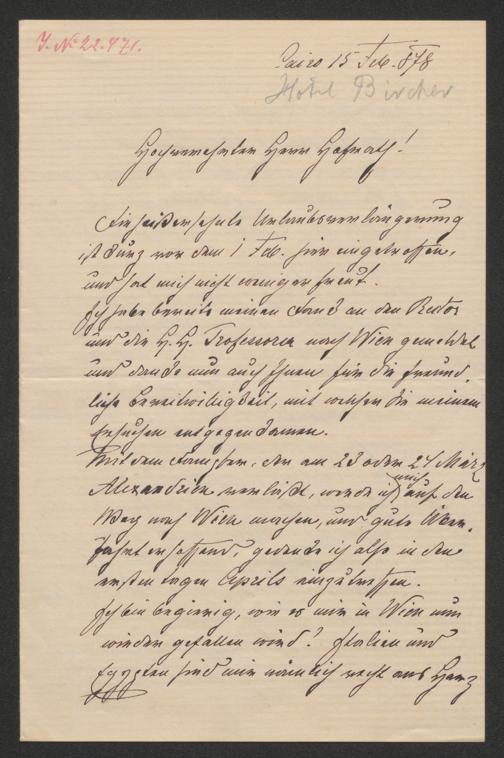 J. No 22.471.
Cairo 15 Feb. 878
Hotel Bircher
Hochverehrter Herr Hofrath!
Die heißersehnte Urlaubsverlängerung
ist kurz vor dem 1 Feb. hier eingetroffen,
und hat mich nicht weniger freut.
Ich habe bereits meinen Dank an den Rector
und die H. H. Professoren nach Wien gemeldet
und danke nun auch Ihnen für die freund-
liche Bereitwilligkeit, mit welcher Sie meinem
Ersuchen entgegenkamen.
Mit dem Dampfer, der am 23 oder 24 März
Alexandrien verläßt, werde ich mich auf den
Weg nach Wien machen, und gute Ueber-
fahrt erhoffend, gedenke ich also in den
ersten Tagen Aprils einzutreffen.
Ich bin begierig, wie es mir in Wien nun
wieder gefallen wird? Italien und
Egypten sind mir nämlich recht ans Herz